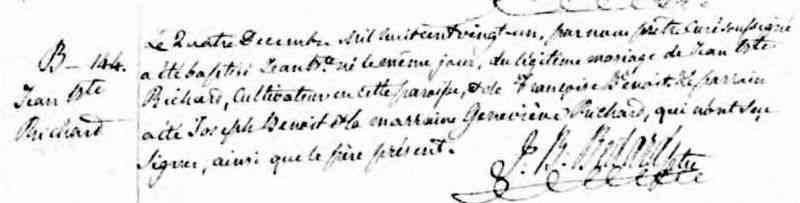 B - 144.
Jean Bte
Richard
Le Quatre Decembre Mil huit cent vingt-un, par nous prêtre Curé soussigné
a été baptisé Jean Bte né le même jour, du légitime mariage de Jean Bte
Richard, Cultivateur en cette paroisse, & de Françoise Benoit. Le parrain
a été Joseph Benoit & la marraine Geneviève Richard, qui n'ont su
signer, ainsi que le père présent.
J. B. Ptre